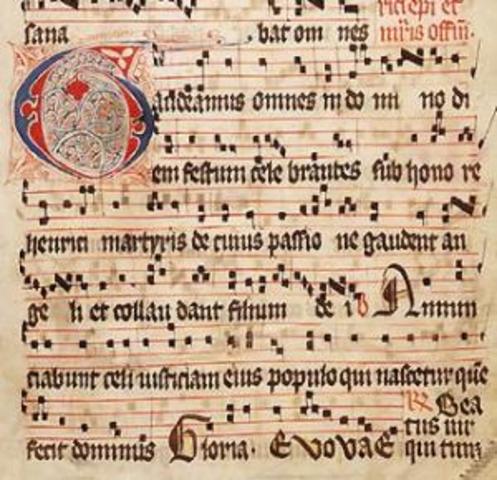 rici epi et
sana bat om nes m̄ris offm̄.
Gaudeamus omnes in do mi no di
em festum cele brantes sub hono re
henrici martyris de cuius passio ne gaudent an
ge li et collau dant filium de i V Annun
ciabunt celi iusticiam eius populo qui nascetur quē
fecit dominus Gloria. EvovaE
R Bea
tus vir
qui